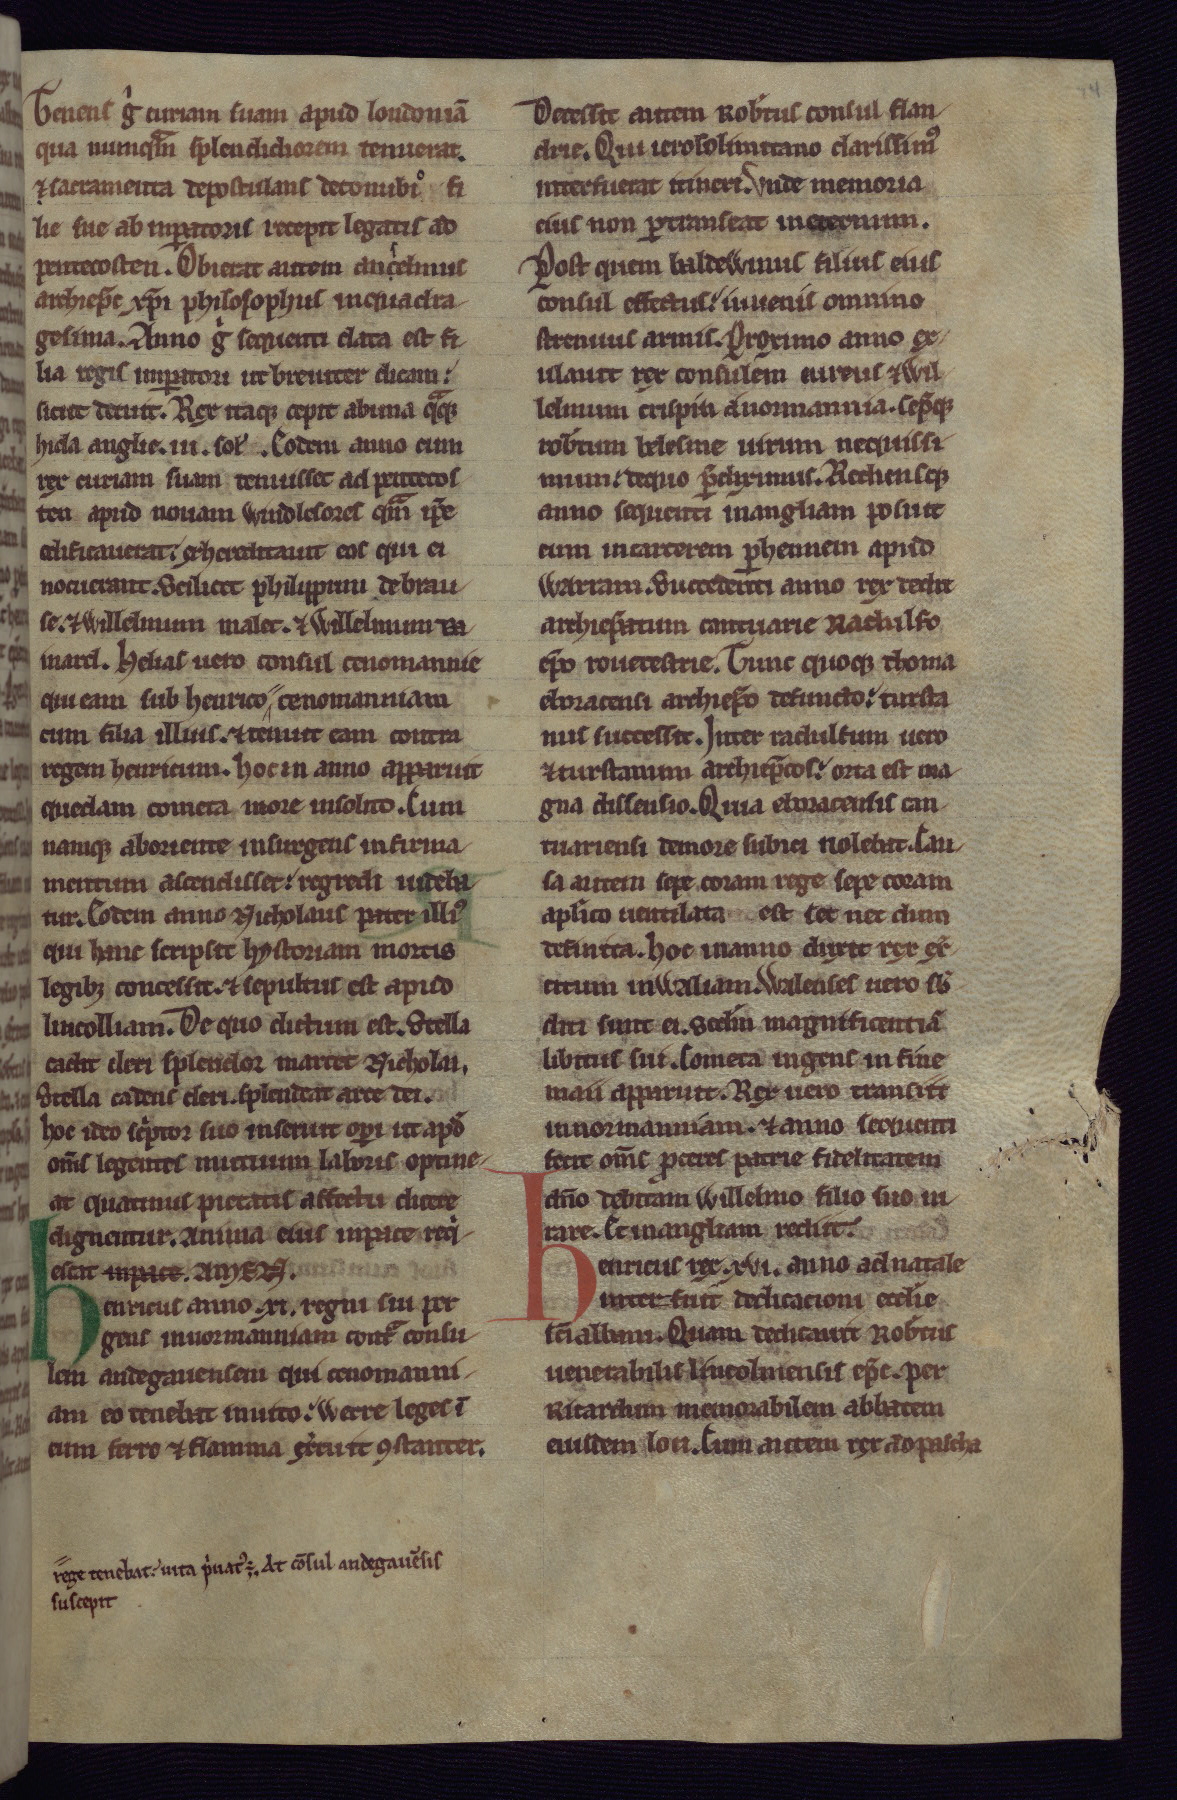 Tenens g̊ curiam suam apud londoniā
qua numqᷓm splendidiorem tenuerat.
⁊ sacramenta depostulans deconubi° fi
lie sue ab inꝑatoris recepit legatis ad
pentecosten. Obierat autem ancelmus
archiep̄c xp̄i philosophus in quadra-
gesima. Anno g̊ sequenti data est fi-
lia regis inꝑatori ut breuiter dicam:
sicut decuit. Rex itaqꝫ cepit abuna qᷓqꝫ
hida anglie .iii. sol̛. Eodem anno cum
rex curiam suam tenuisset ad pentecos
ten apud nouam Windlesores qᷓm ip̄e
edificauerat: exhereditauit eos qui ei
nocuerant. Scilicet philippum de brau-
se. ⁊ Willelmum malet. ⁊ Willelmum ba
inard. Helias uero consul cenomannie
qui eam sub henrico // cenomanniam
cum filia illius. ⁊ tenuit eam contra
regem henricum. Hoc in anno apparuit
quedam cometa more insolito. Cum
namqꝫ aboriente insurgens in firma-
mentum ascendisset: regredi uideba-
tur. Eodem anno Nicholaus pater illi᷒
qui hanc scripsit hystoriam mortis
legibꝫ concessit. ⁊ sepultus est apud
lincolliam. De quo dictum est. Stella
cadit cleri splendor marcet Nicholai.
Stella cadens cleri. splendeat arce dei.
Hoc ideo sc̛ptor suo inseruit oꝑi ut apd̄
om̄s legentes mutuum laboris optine-
at quatinus pietatis affectu dicere
dignentur. Anima eius in pace req̇-
escat in pace. AMEN.
Henricus anno .xi. regni sui per
gens innormanniam contᷓ consu-
lem andegauensem qui cenomanni-
am eo tenebat inuito: Werre leges ī
eum ferro ⁊ flamma ex̄cuit ꝯstanter.
// rege tenebat: uita p̛uat᷒ ÷. At cōsul andegauēsis
suscepit
Decessit autem Rob̄tus consul flan-
drie. Qui ierosolimitano clarissim᷒
interfuerat itineri. Vnde memoria
eius non ꝑtranseat in eternum.
Post quem baldeWinus filius eius
consul effectus: iuuenis omnino
strenuus armis. Proximo anno ex-
ulauit rex consulem eureus ⁊ Wil-
lelmum crispin anormannia. Cep̄qꝫ
rob̄tum belesme uirum nequissi-
mum: dequo p̄diximus. Rediensqꝫ
anno sequenti inangliam posuit
eum incarcerem ꝑhennem apud
Warram. Succedenti anno rex dedit
archiep̄atum cantuarie Radulfo
ep̄o rouecestrie. Tunc quoqꝫ thoma
eboracensi archiep̄o defuncto: tursta
nus successit. Inter radulfum uero
⁊ turstanum archiep̄cos: orta est ma-
gna dissensio. Quia eboracensis can-
tuariensi demore subici nolebat. Cau-
sa autem sepe coram rege sepe coram
apl̄ico uentilata est set nec dum
definita. Hoc inanno duxit rex ex̄-
citum inWaliam. Walenses uero sb̄
diti sunt ei. Scdm̄ magnificentiā
libitus sui. Cometa ingens in fine
maii apparuit. Rex uero transiit
innormanniam. ⁊ anno sequenti
fecit om̄s ꝓceres patrie fidelitatem
dn̄o debitam Willelmo filio suo iu-
rare. Et inangliam rediit:
Henricus rex .xvi. anno ad natale
interfuit dedicacioni eccl̄ie
sc̄i albani. Quam dedicauit Rob̄tus
uenerabilis lincolniensis ep̄c. per
Ricardum memorabilem abbatem
eiusdem loci. Cum autem rex ad pascha